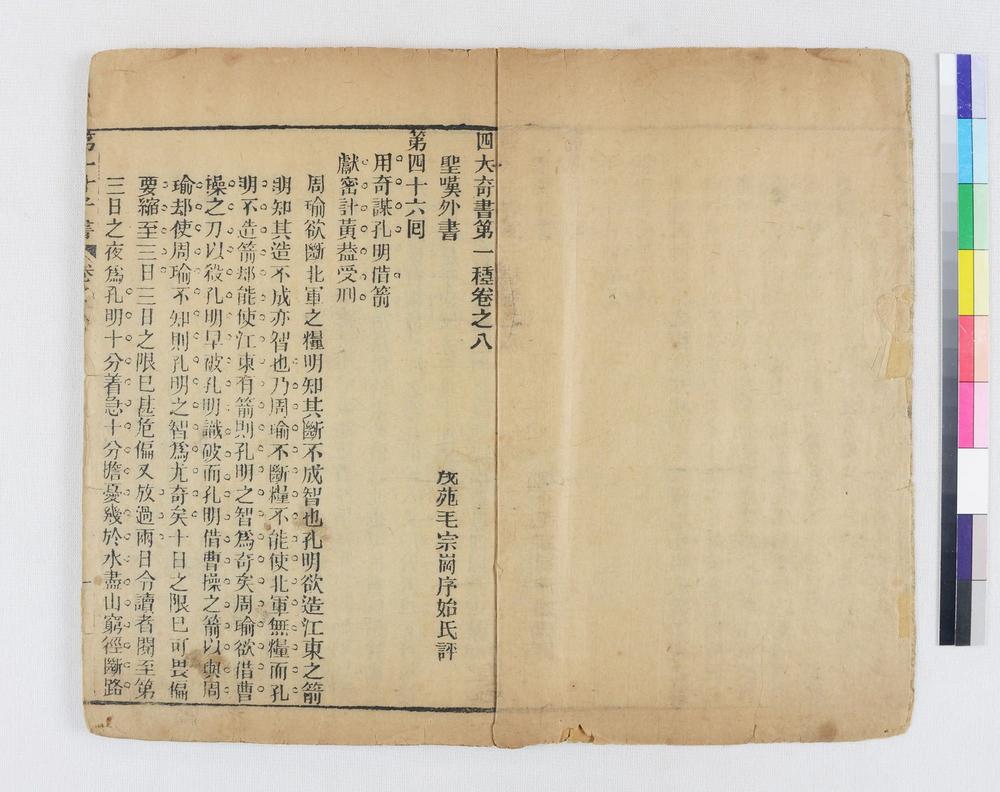 四大奇書第一種卷之八
聖嘆外書
茂苑毛宗崗序始氏評
第四十六回
用奇謀孔明借箭
獻密計黃葢受刑
周瑜欲斷北軍之糧明知其斷不成智也孔明欲造江東之箭
明知其造不成亦智也乃周瑜不斷糧不能使北軍無糧而孔
明不造箭却能使江東有箭則孔明之智爲奇矣周瑜欲借曹
操之刀以殺孔明早破孔明識破而孔明借曹操之箭以與周
瑜却使周瑜不知則孔明之智爲尤奇矣十日之限已可畏偏
要縮至三日三日之限已甚危偏又放過兩日令讀者閱至第
三日之夜爲孔明十分着急十分擔憂幾於水盡山窮徑斷路
第一才子書 卷